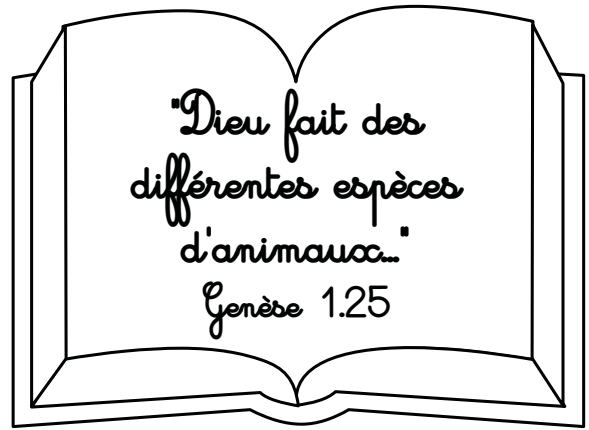 "Dieu fait des
différentes espèces
d'animaux..."
Genèse 1.25